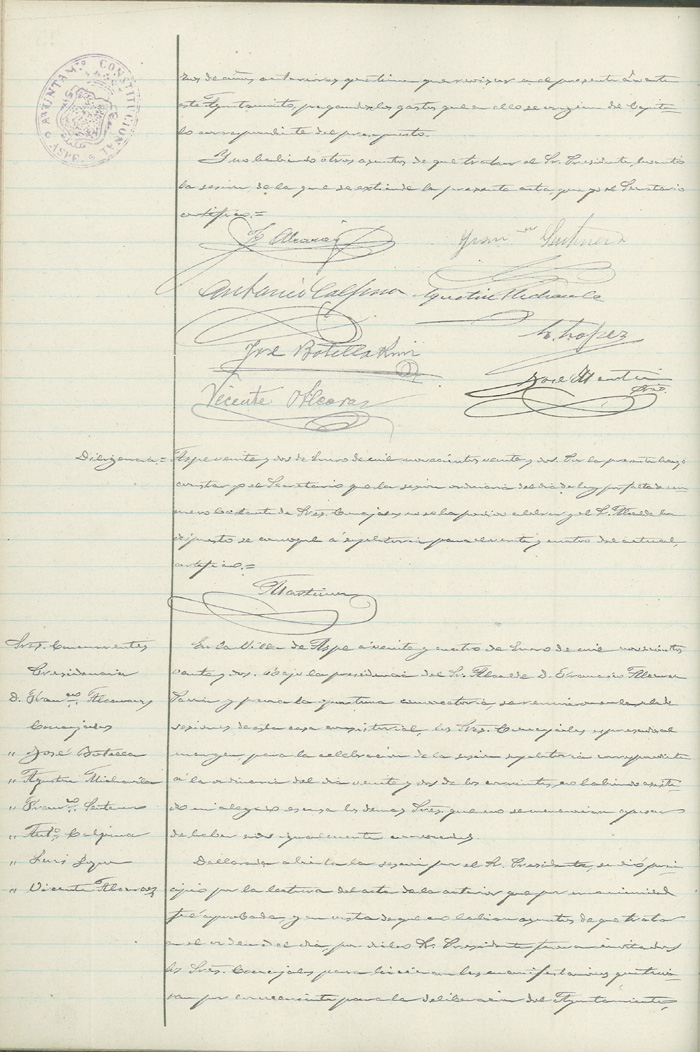 AYUNTAM.TO CONSTITUCIONAL * ASPE *
ros de años anteriores que tienen que revisar en el presente ante
este Ayuntamiento, pagando los gastos que en ello se originen del Capítu-
lo correspondiente del presupuesto.
Y no habiendo otros asuntos de que tratar el Sr. Presidente, levantó
la sesión de la que se extiende la presente acta, que yo el Secretario
certifico.=
F. Alcaraz
Fran.co
Antonio Calpena
Agustin Mirambell
L. Lopez
José Botella
Vicente Alcaraz
José Martín
Srio.
Diligencia.= Aspe veinte y dos de Enero de mil novecientos veinte y dos. Por la presente hago
constar yo el Secretario que la sesión ordinaria del día de hoy por falta de nú-
mero bastante de Sres. Concejales no se ha podido celebrar y el Sr. Alcalde ha
dispuesto se convoque á supletoria para el veinte y cuatro del actual,
certifico.=
Martín
Sres. Concurrentes
Presidencia
D. Fran.co Alcaraz
Concejales
" José Botella
" Agustin
" Fran.co
" Ant.o Calpena
" Luis Lopez
" Vicente Alcaraz
En la Villa de Aspe á veinte y cuatro de Enero de mil novecientos
veinte y dos. Bajo la presidencia del Sr. Alcalde D. Francisco Alcaraz
y previa la oportuna convocatoria, se reunieron en la sala de
sesiones de esta casa consistorial, los Sres. Concejales expresados al
margen para la celebración de la sesión supletoria correspondiente
á la ordinaria del día veinte y dos de los corrientes, no habiendo asisti-
do ni alegado excusa los demas Sres. que no se mencionan apesar
de haber sido igualmente convocados.
Declarada abierta la sesión por el Sr. Presidente, se dió princi-
pio por la lectura del acta de la anterior que por unanimidad
fué aprobada, y en vista de que no habian asuntos de que tratar
en el orden del día, por dicho Sr. Presidente fueron invitados
los Sres. Concejales para hicieran las manifestaciones que tuvie-
ran por conveniente para la deliberación del Ayuntamiento,